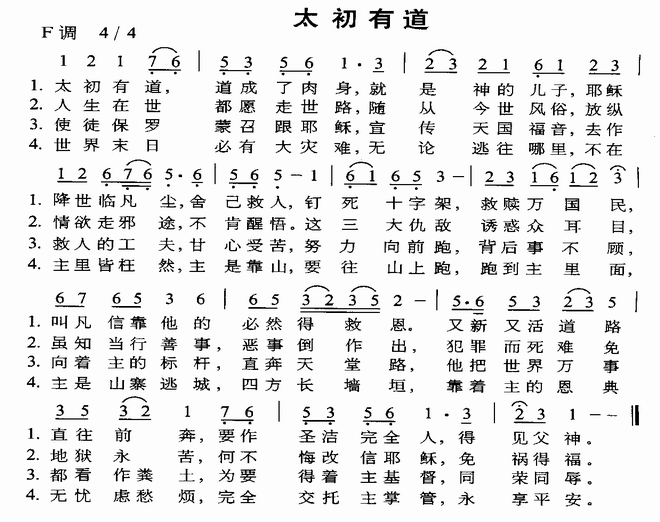 太初有道
F调 4/4
1 2 1 7·6 | 5·3 5·6 1·3 | 2 3 2 1 6 1 2 3 |
1. 太初有道， 道成了肉身，就 是 神的儿子，耶稣
2. 人生在世 都愿走世路，随 从 今世风俗，放纵
3. 使徒保罗 蒙召跟耶稣，宣 传 天国福音，去作
4. 世界末日 必有大灾难，无 论 逃往哪里，不在
1 2 6 7 6 5·6 | 5 6 5-1 | 6 1 6 5 3- | 2 3 1 6 1 2 3 |
1. 降世临凡 尘，舍 己救人，钉 死 十字架， 救赎万国民，
2. 情欲走邪 途，不 肯醒悟。这 三 大仇敌 诱惑众耳目，
3. 救人的工 夫，甘 心受苦，努 力 向前跑， 背后事不顾，
4. 主里皆枉 然，主 是靠山，要 往 山上跑， 跑到主里面，
6 7 6 5 3 6 | 6 5 3 2 3 5 2- | 5·6 5 3 2 3 5 |
1. 叫凡信靠他的 必然得救恩。 又新又活道路
2. 虽知当行善事， 恶事倒作出， 犯罪而死难免
3. 向着主的标杆， 直奔天堂路， 他把世界万事
4. 主是山寨逃城， 四方长墙垣， 靠着主的恩典
3 5 3 2 1 7·6 | 5·3 5·6 1·3 | 2 3 1-- ‖
1. 直往前 奔，要作 圣洁完全 人，得 见父神。
2. 地狱永 苦，何不 悔改信耶稣，免 祸得福。
3. 都看作粪土，为要 得着主基督，同 荣同辱。
4. 无忧虑愁烦，完全 交托主掌管，永 享平安。